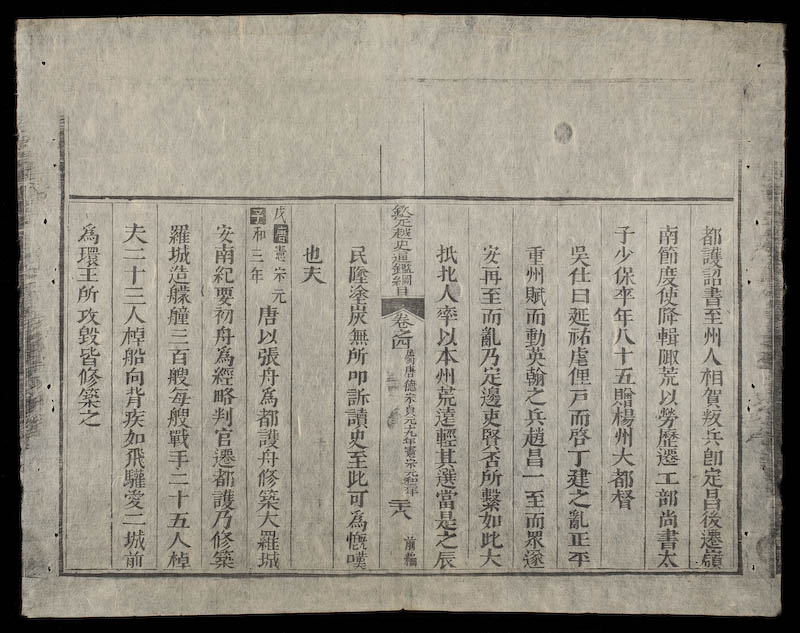 都護詔書至州人相賀叛兵卽定昌後遷嶺
南節度使降輯陬荒以勞歷遷工部尚書太
子少保卒年八十五贈楊州大都督
吳仕曰延祐虐俚戸而啓丁建之亂正平
重州賦而動英翰之兵趙昌一至而眾遂
安再至而亂乃定邊吏賢否所繫如此大
抵北人率以本州荒遠輕其選當是之辰
欽定越史通鑑綱目
卷之四
屬唐德宗貞元九年憲宗元和三年
二十八
前編
民墮塗炭無所叩訴讀史至此可為慨嘆
也夫
戊子 唐憲宗元和三年
唐以張舟為都護舟修築大羅城
安南紀要初舟為經略判官遷都護乃修築
羅城造艨艟三百艘每艘戰手二十五人棹
夫二十三人棹船向背疾如飛驩愛二城前
為環王所攻毀皆修築之